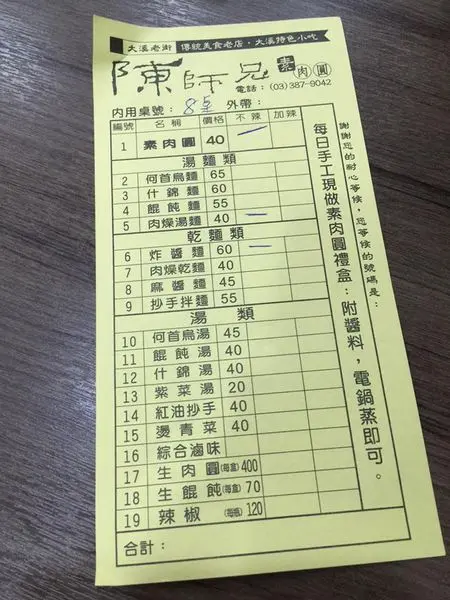 大溪老街 傳統美食老店・大溪特色小吃
陳師兄 素肉圓
電話：(03)387-9042
內用桌號：8桌 外帶：
編號 名稱 價格 不辣 加辣
1 素肉圓 40 一
湯麵類
2 何首烏麵 65
3 什錦麵 60
4 餛飩麵 55
5 肉燥湯麵 40 一
乾麵類
6 炸醬麵 60 一
7 肉燥乾麵 40
8 麻醬麵 45
9 抄手拌麵 55
湯類
10 何首烏湯 45
11 餛飩湯 40
12 什錦湯 40
13 紫菜湯 20
14 紅油抄手 40
15 燙青菜 40
16 綜合滷味
17 生肉圓(每盒) 400
18 生餛飩(每盒) 70
19 辣椒 (每瓶) 120
合計：
每日手工現做素肉圓禮盒：附醬料，電鍋蒸即可。
謝謝您的耐心等候，您等候的號碼是：